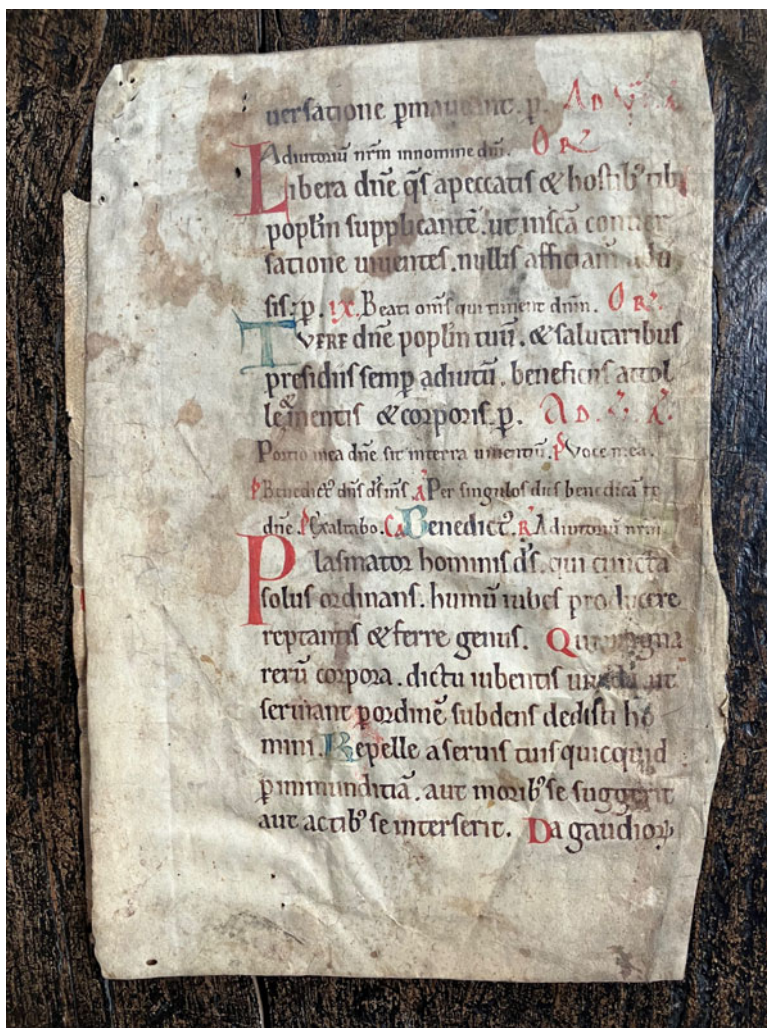 uersatione ꝑmaneant. p. AD V
Adiutoriū nr̄m innomine dn̄i. OR
Libera dn̄e q̄s apeccatis & hostibꝰ tibi
popl̄m supplicantē. ut insc̄a conuer
satione uiuentes. nullis afficiant̄ adu
sis. p. IX. Beati om̄s qui timent dn̄m. OR.
TVERE dn̄e popl̄m tuū. & salutaribus
presidiis semp̄ adiutū. beneficiis attol
le & mentis & corporis. p. AD.
Portio mea dn̄e sit interra uiuentiū. P̄ Voce mea.
P̄ Benedictꝰ dn̄s ds̄ ms̄ A Per singulos dies benedicā te
dn̄e. P̄ Exaltabo. Ca Benedictꝰ. R Adiutoriū nr̄m
Plasmator hominis ds̄. qui cuncta
solus ordinans. humū iubes producere
reptantis & ferre genus. Qui magna
rerū corpora. dictu iubentis uiuida ut
seruiant ꝑ ordinē subdens dedisti ho
mini. Repelle a seruis tuis quicquid
ꝑ inmunditiā. aut moribꝰ se suggerit
aut actibꝰ se interserit. Da gaudioꝝ